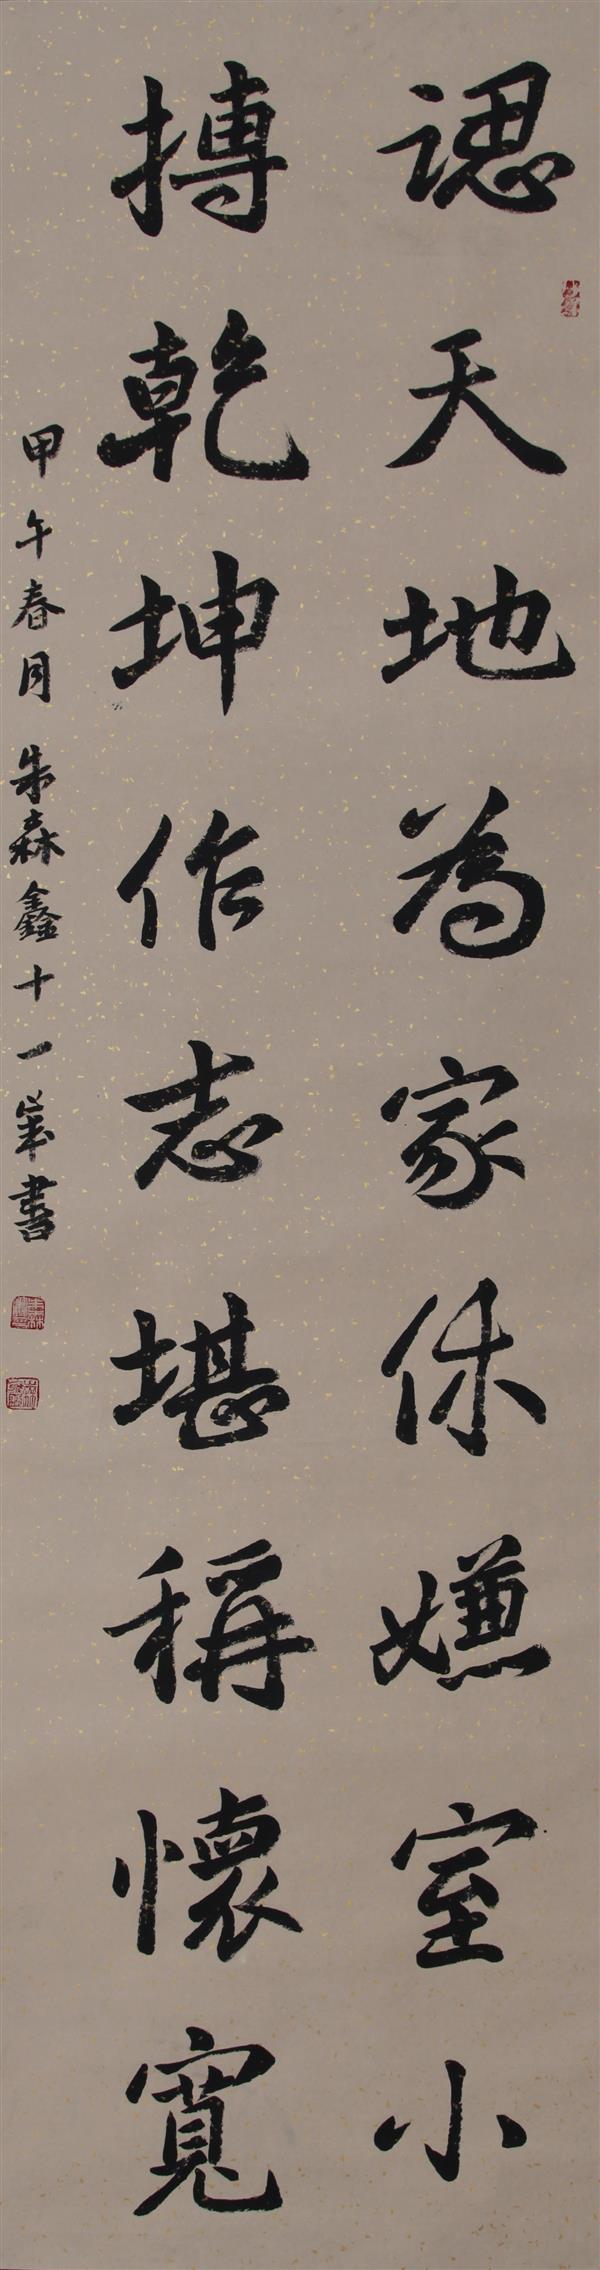 認天地為家休嫌室小
搏乾坤作志堪稱懷寬
甲午春月朱森鑫十一歲書